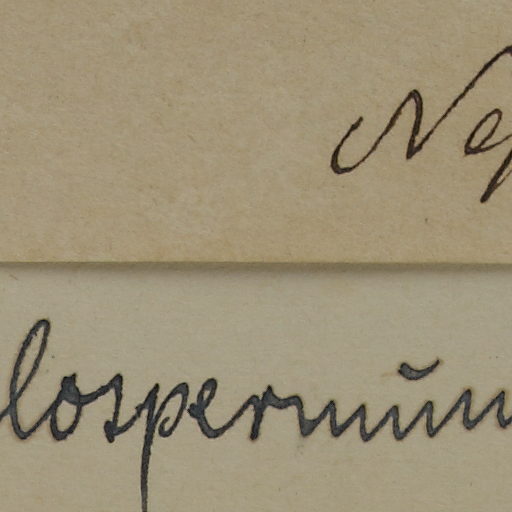 Nep
lospermum